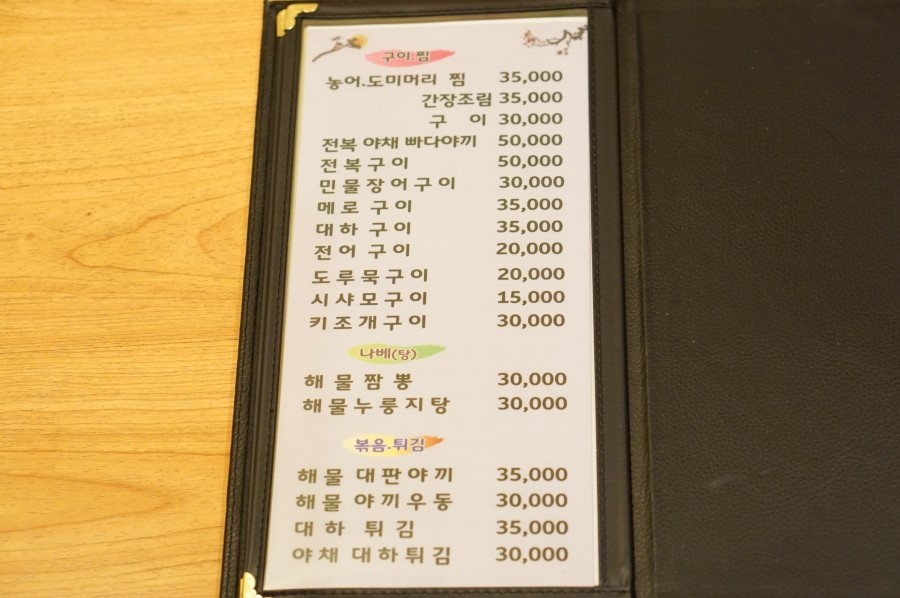 구이찜
농어.도미머리 찜 35,000
간장조림 35,000
구 이 30,000
전복 야채 빠다야끼 50,000
전복구이 50,000
민물장어구이 30,000
메로 구이 35,000
대하 구이 35,000
전어 구이 20,000
도루묵구이 20,000
시샤모구이 15,000
키조개구이 30,000
나베(탕)
해물짬뽕 30,000
해물누룽지탕 30,000
볶음.튀김
해물 대판야끼 35,000
해물 야끼우동 30,000
대하 튀김 35,000
야채 대하튀김 30,000